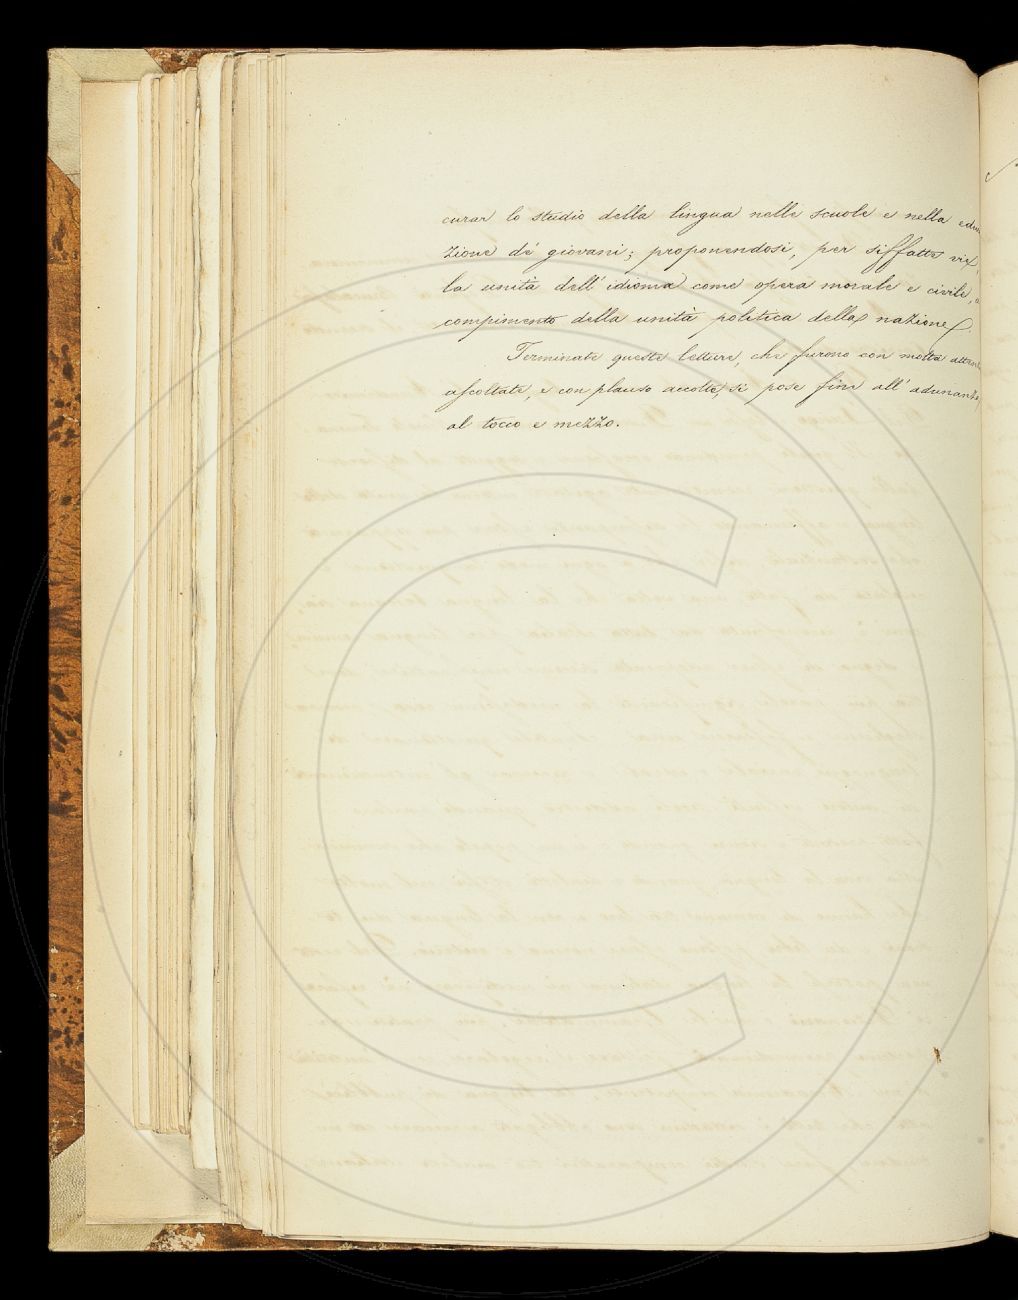 curar lo studio della lingua nelle scuole e nella edu
zione de' giovani; proponendosi, per siffatta via,
la unità dell'idioma come opera morale e civile, a
compimento della unità politica della nazione.
Terminate queste letture, che furono con molta atten
ascoltate, e con plauso accolte, si pose fine all'adunanza
al tocco e mezzo.